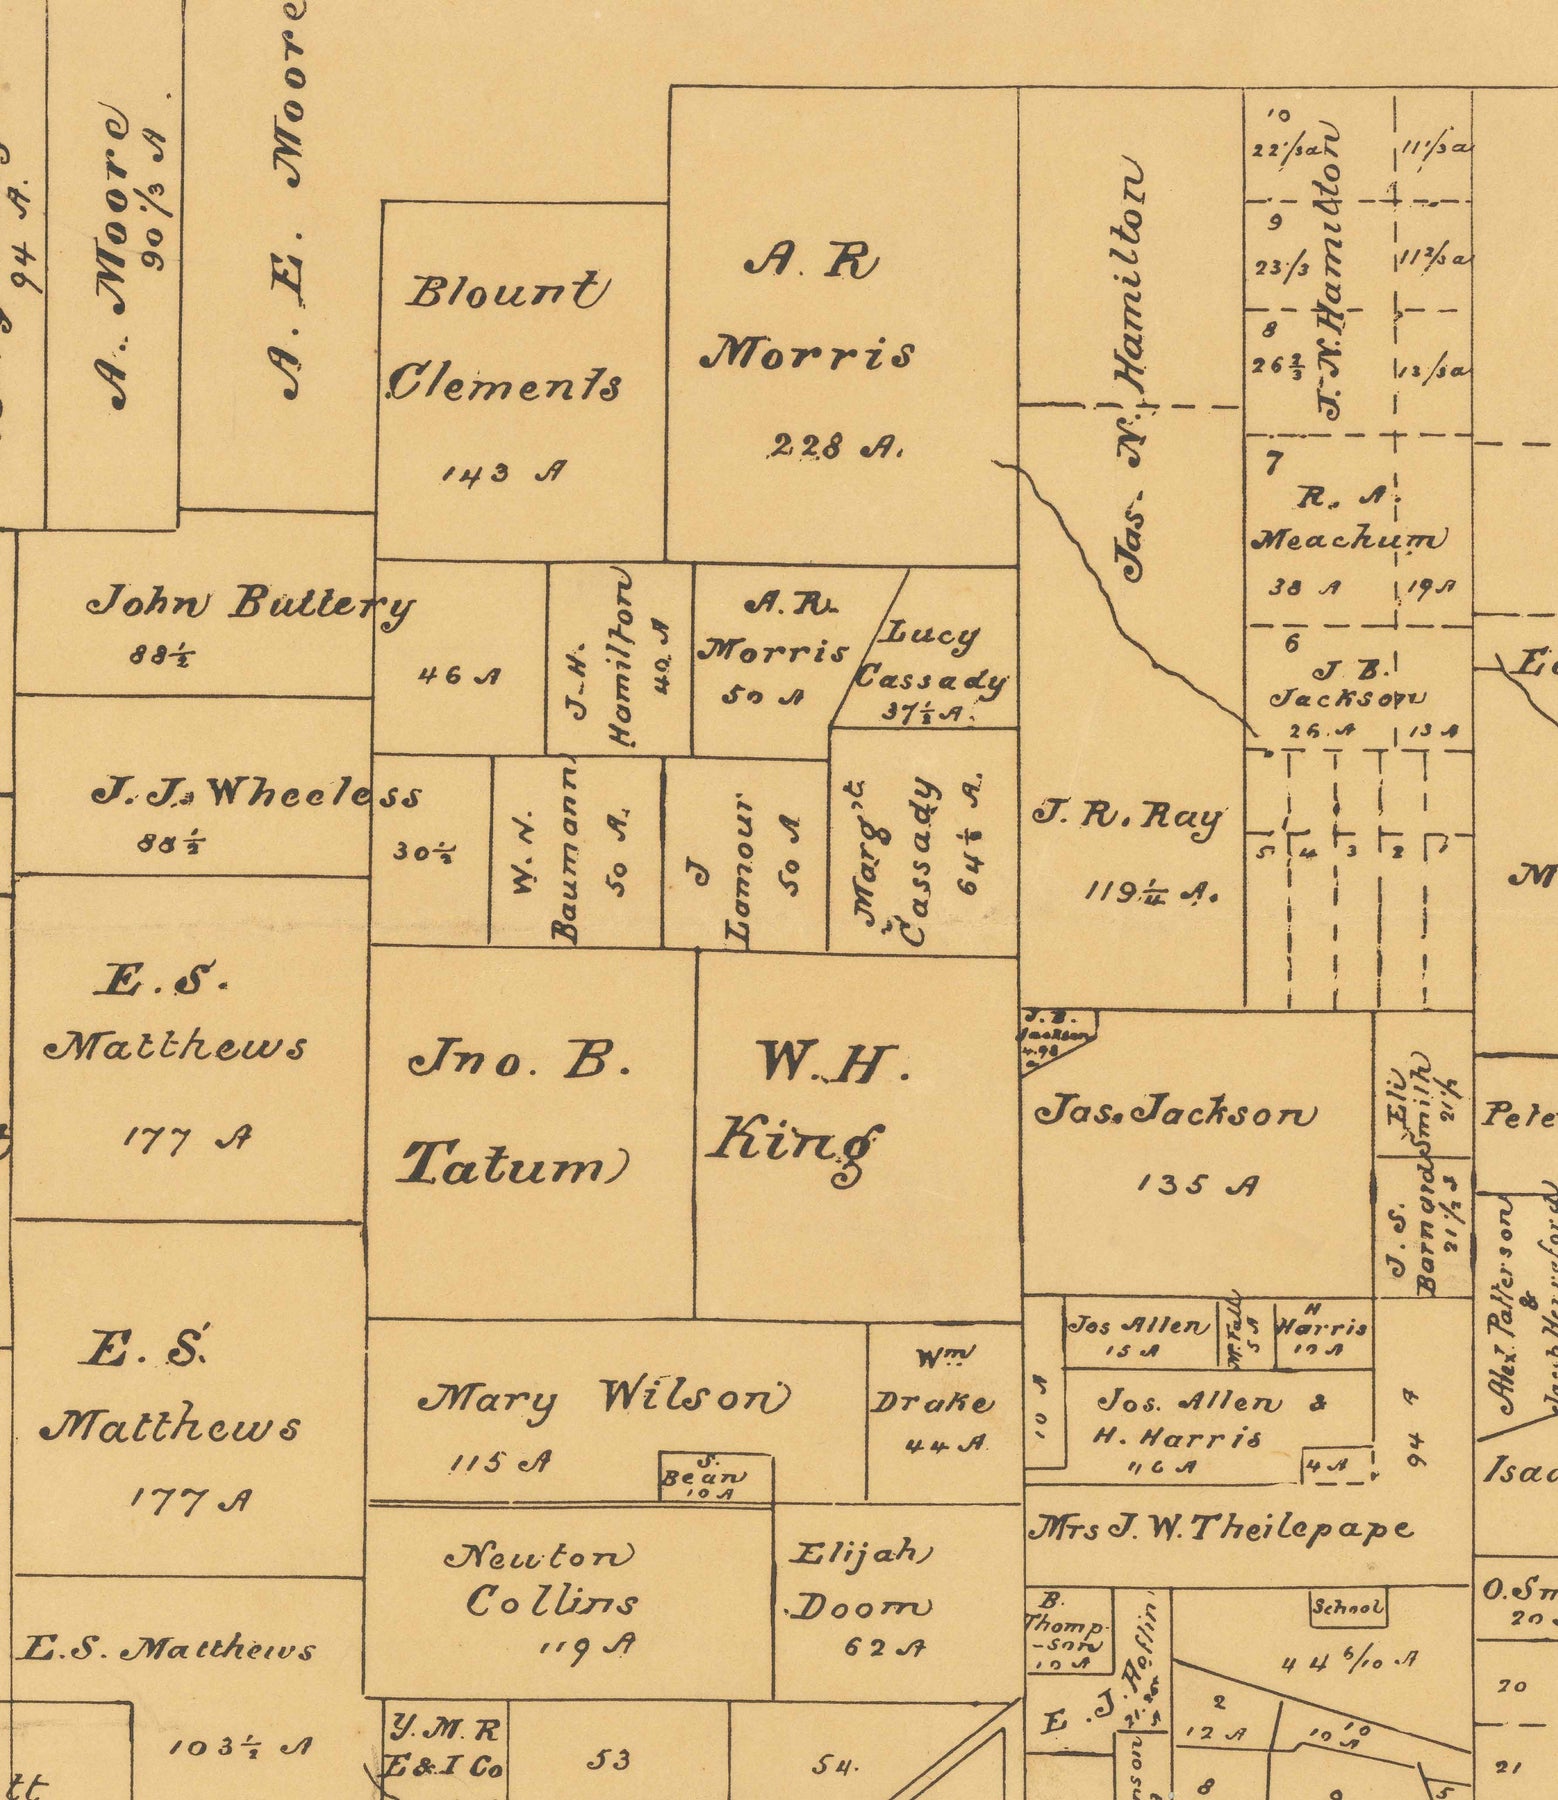 94 A.
A. Moore
90 1/3 A
A. E. Moore
Blount
Clements
143 A
A. R
Morris
228 A.
Jas. N. Hamilton
10
22 1/3 a
11 1/3 a
9
23 1/3
11 2/3 a
8
26 2/3
13 1/3 a
J. N. Hamilton
7
R. A.
Meachum
38 A
19 A
6
J. B.
Jackson
26 A
13 A
5 4 3 2 1
John Buttery
88 1/2
46 A
J. H.
Hamilton
40 A
A. R.
Morris
50 A
Lucy
Cassady
37 1/2 A.
J. J. Wheeless
88 1/2
30 1/2
W. N.
Baumann
50 A.
J
Lamour
50 A
Marg't
Cassady
J. R. Ray
119 1/4 A.
E. S.
Matthews
177 A
Jno. B.
Tatum
W. H.
King
J. B.
Jackson
4.98
a
Jas. Jackson
135 A
Eli
Smith
J. S.
Barnard
Pete
Alex. Patterson
&
E. S.
Matthews
177 A
Mary Wilson
115 A
S.
Bean
10 A
Wm
Drake
44 A
10 A
Jos Allen
15 A
McFall
5 A
H
Harris
10 A
Jos. Allen &
H. Harris
4 A
94 A
Isaa
Mrs J. W. Theilepape
Newton
Collins
119 A
Elijah
Doom
62 A
E. S. Matthews
103 1/2 A
tt
Y. M. R
E & I Co
53
54.
B.
Thomp
-son
10 A
E. J. Hoflin
School
44 6/10 A
2
12 A
10
10 A
8
9
5
nson
O. Sm
20
20
21
Ed
M